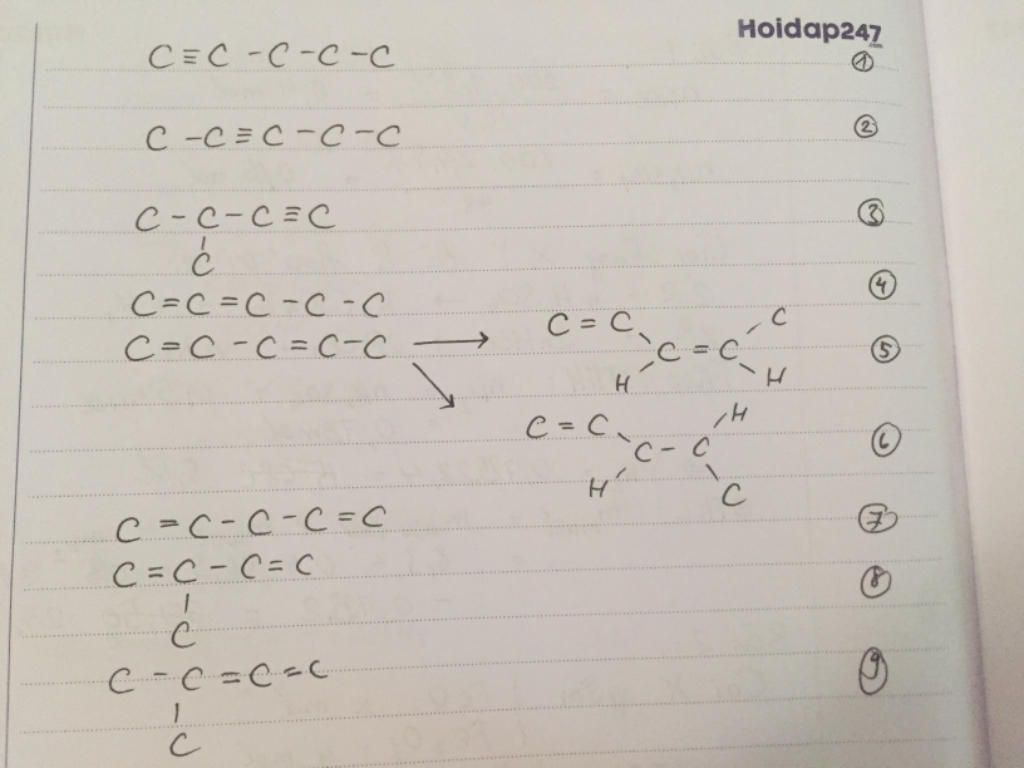 Hoidap247
.com
C≡C-C-C-C ①
C-C≡C-C-C ②
C-C-C≡C ③
C
C=C=C-C-C ④
C=C-C=C-C → C=C C=C C H H ⑤
C=C C-C H H C ⑥
C=C-C-C=C ⑦
C=C-C=C ⑧
C
C-C=C=C ⑨
C